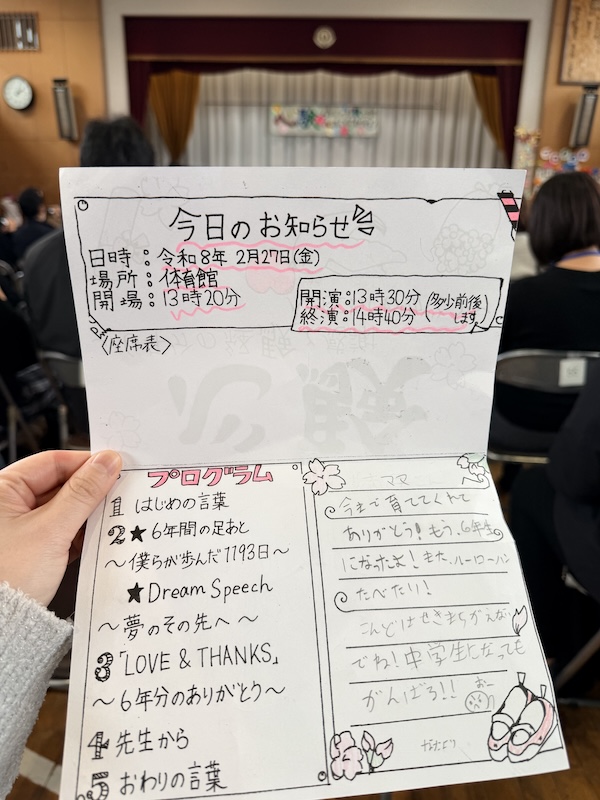 今日のお知らせ
日時：令和8年 2月27日(金)
場所：体育館
開場：13時20分
開演：13時30分 (多少前後
終演：14時40分 します)
〈座席表〉
プログラム
1 はじめの言葉
2★6年間の足あと
～僕らが歩んだ1193日～
★Dream Speech
～夢のその先へ～
3「LOVE & THANKS」
～6年分のありがとう～
4 先生から
5 おわりの言葉
ママ
今まで育ててくれて
ありがとう！もう、6年生
になったよ！また、ルーローハン
たべたり！
こんどはせきまちがえない
でね！中学生になっても
がんばろ！！